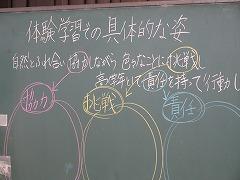 体験学習での具体的な姿
自然とふれ合い協力しながら色々なことに挑戦し
高学年として責任を持って行動し
協力
挑戦
責任